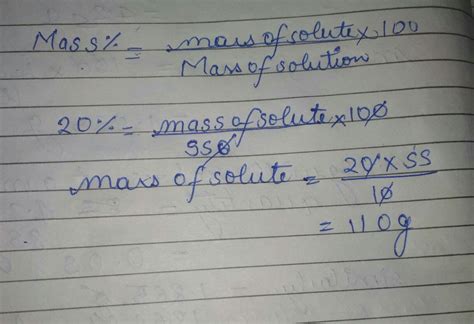 Mass% = mass of solute × 100
Mass of solution
20% = mass of solute × 100
550
mass of solute = 20 × 55
10
= 110g